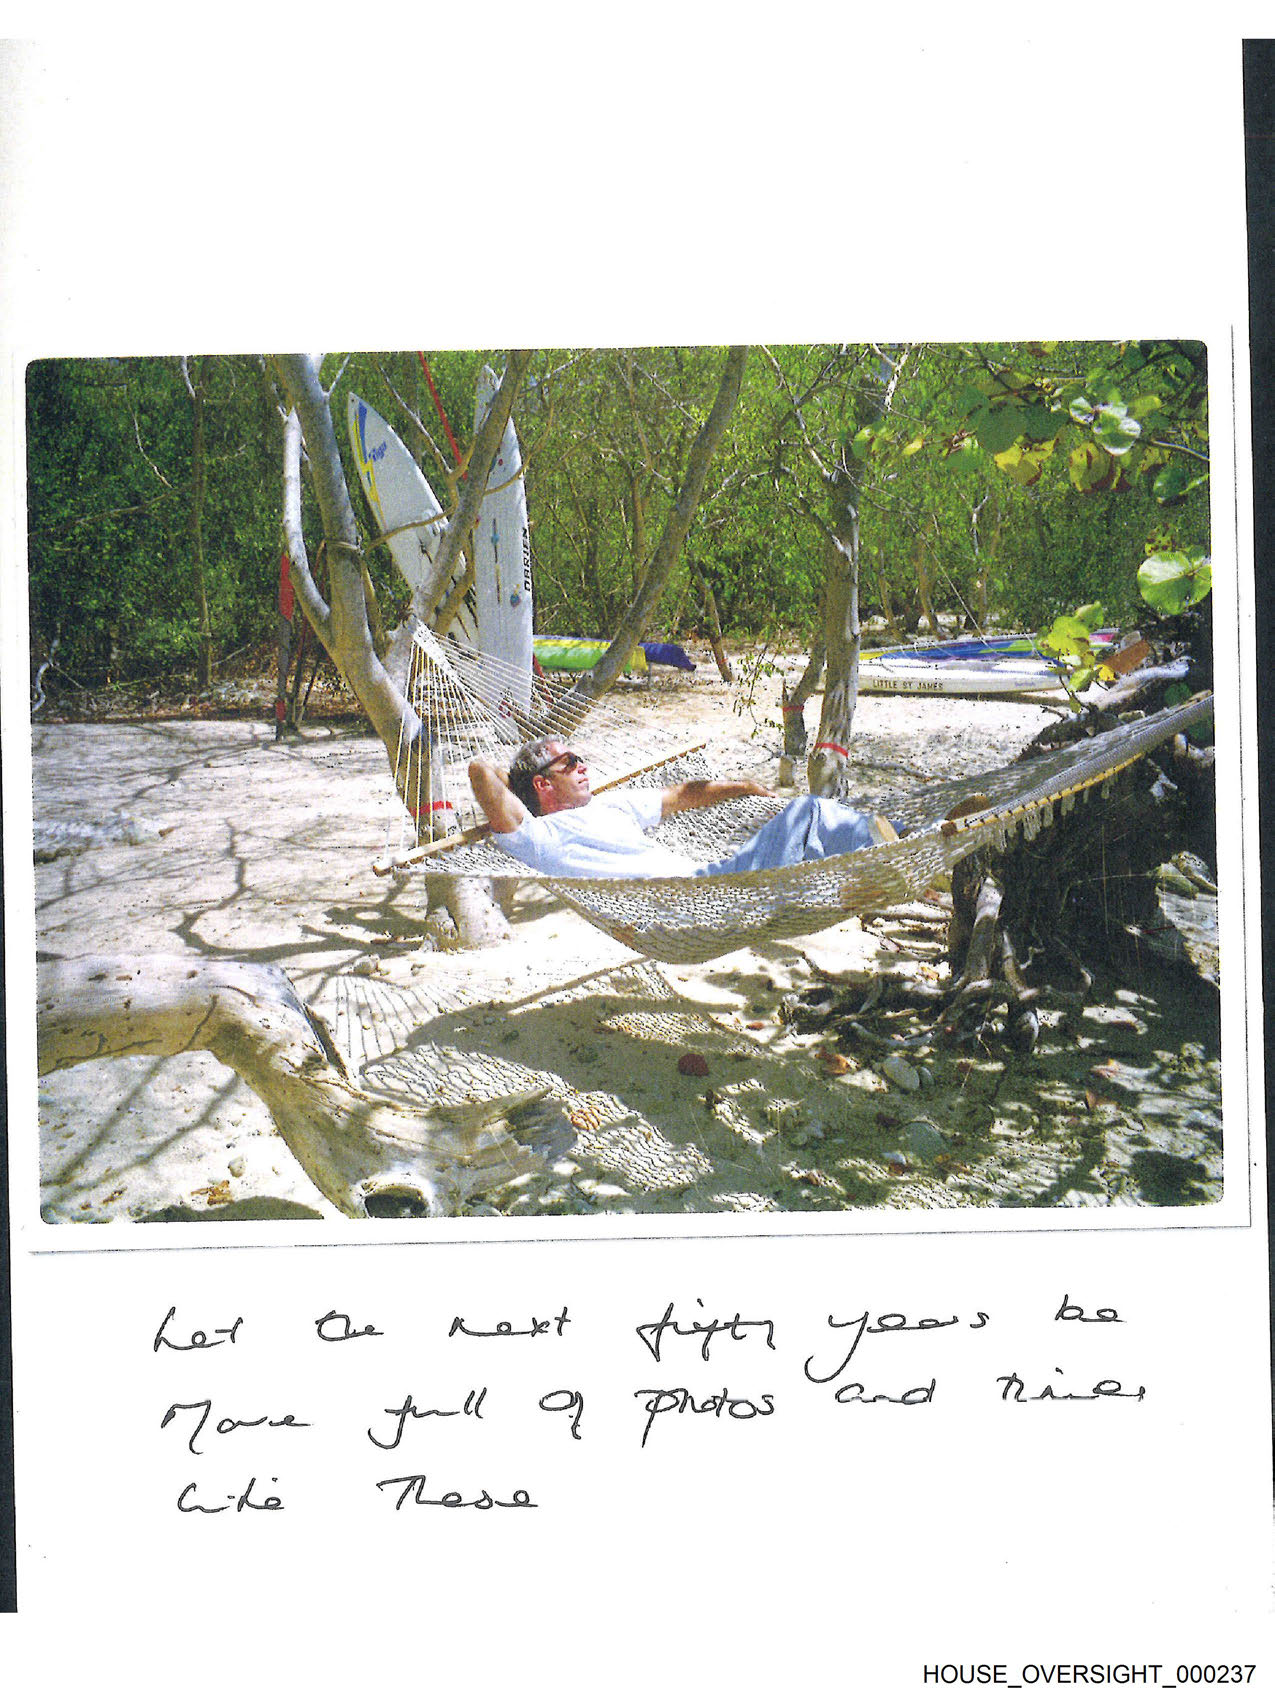 O'BRIEN
LITTLE ST JAMES
Let the next fifty years be
More full of photos and times
like These
HOUSE_OVERSIGHT_000237